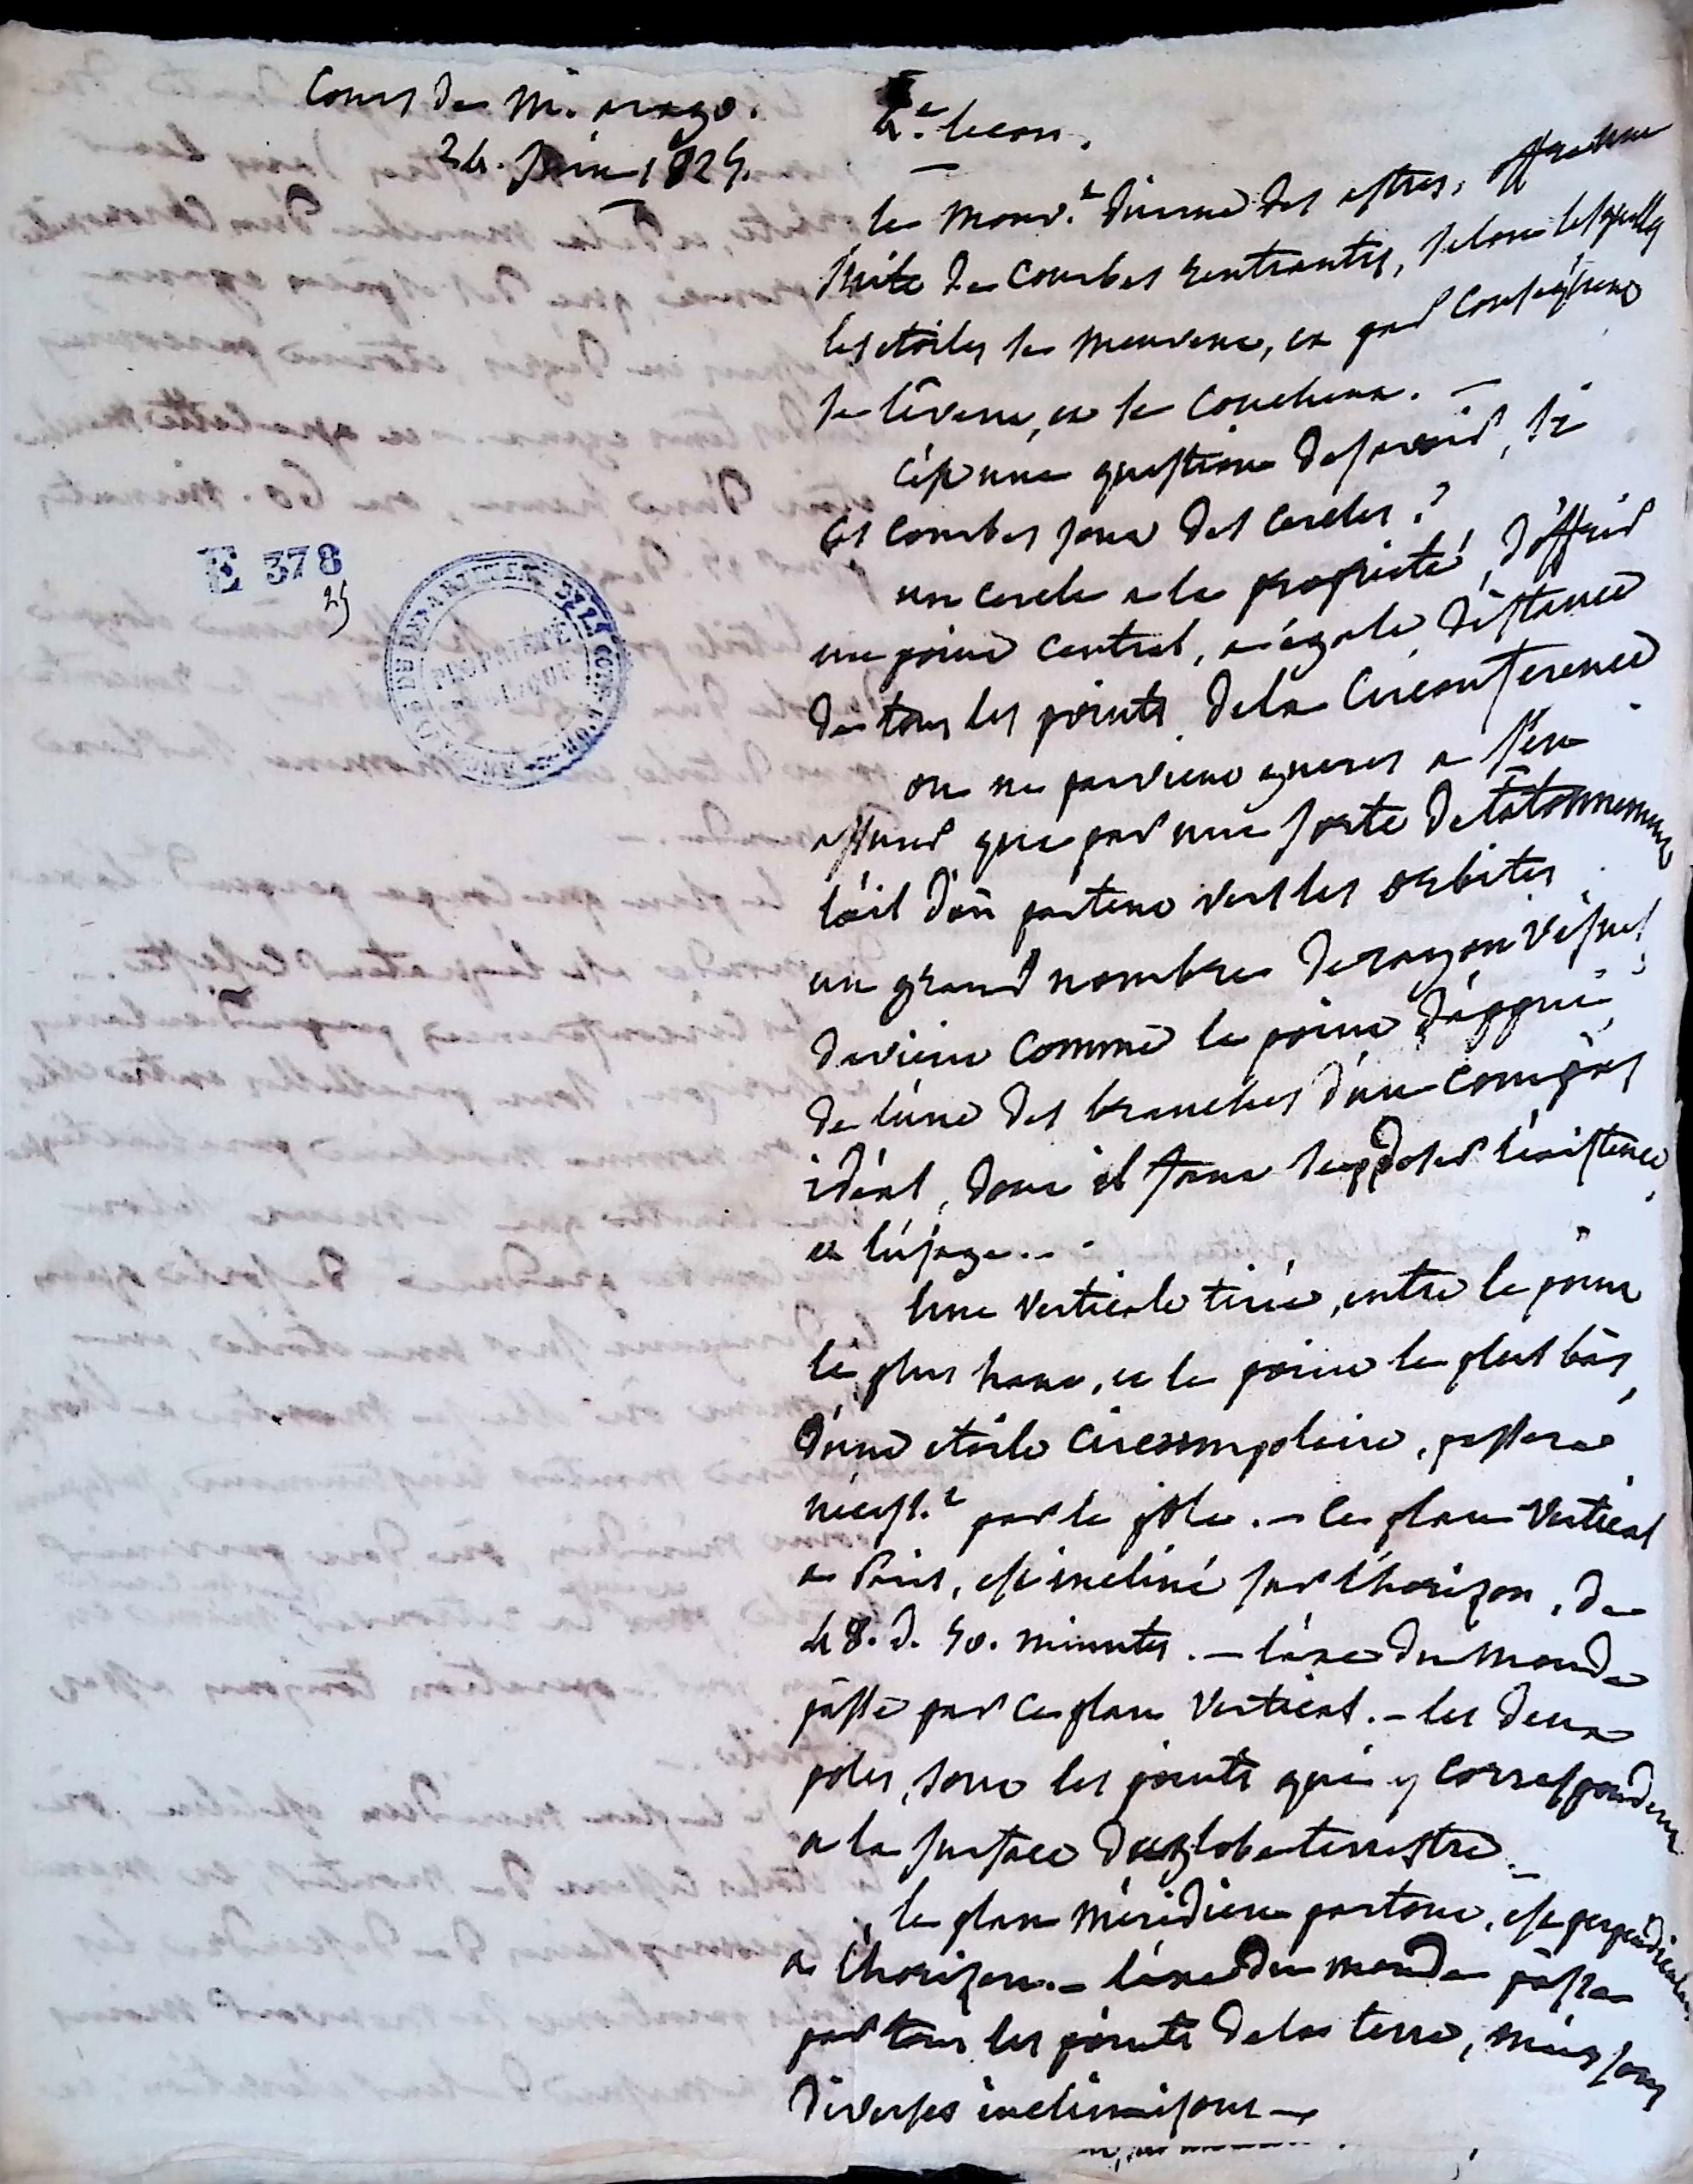 Cours de M. arago.
24. Juin 1825.
4.e lecon.
le mouv.t diurne des astres, offre une
suite de courbes rentrantes, selon lesquelles
les etoiles se meuvent, et par consequent
se lêvent, et se couchent. —
c'est une question de savoir, si
ces courbes sont des cercles ?
un cercle a la propriété, d'offrir
un point central, a égale distance
de tous les points de la circonference
on ne parvient gueres a s'en
assurer que par une sorte de tâtonnement
l'œil d'où partent vers les orbites
un grand nombre de rayon visuels,
devient comme le point d'appui
de l'une des branches d'un compas
idéal, dont il faut supposer l'existence,
et l'usage. . .
Une verticale tirée, entre le point
le plus haut, et le point le plus bas,
d'une etoile circompolaire, passera
nécess.t par le pôle. — ce plan vertical
a Paris, est incliné sur l'horizon, de
48. d. 50. minutes. — l'axe du monde
passe par ce plan vertical. — les deux
poles, sont les points qui y correspondent
a la surface du globe terrestre. —
le plan méridien partout, est perpendiculaire
a l'horizon. — l'axe du monde passe
par tous les points de la terre, mais sous
diverses inclinaisons —
E 378
25
PROPRIÉTÉ
PUBLIQUE